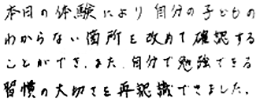 本日の体験により自分の子どもの
わからない箇所を改めて確認する
ことができ、また、自分で勉強できる
習慣の大切さを再認識できました。